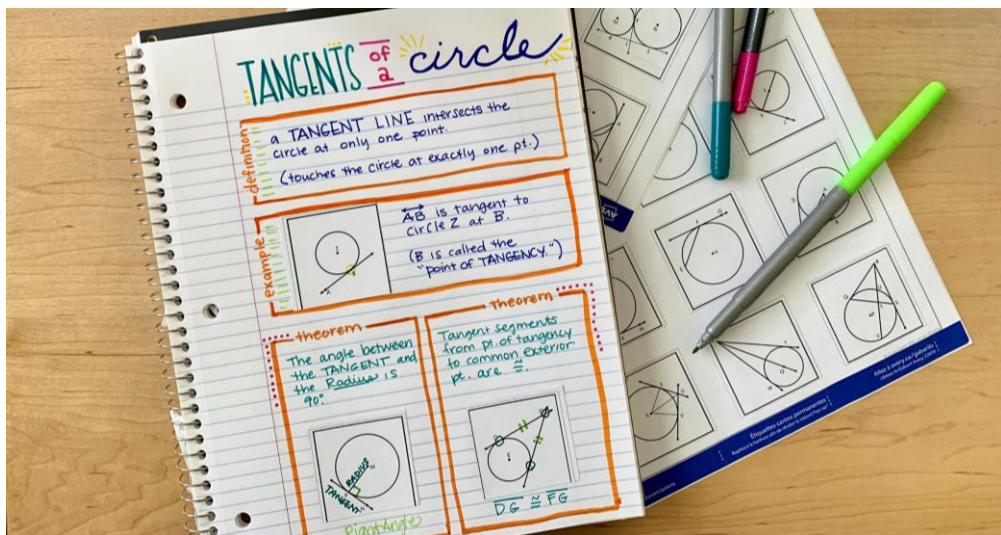 TANGENTS of a circle
definition
a TANGENT LINE intersects the
circle at only one point.
(touches the circle at exactly one pt.)
example
AB is tangent to
circle Z at B.
(B is called the
"point of TANGENCY.")
theorem
The angle between
the TANGENT and
the Radius is
90°.
RADIUS
TANGENT
Right Angle
theorem
Tangent segments
from pt. of tangency
to common exterior
pt. are ≅.
DG ≅ FG
AVERY
Étiquettes carrés permanentes
Allez à avery.ca/gabarits